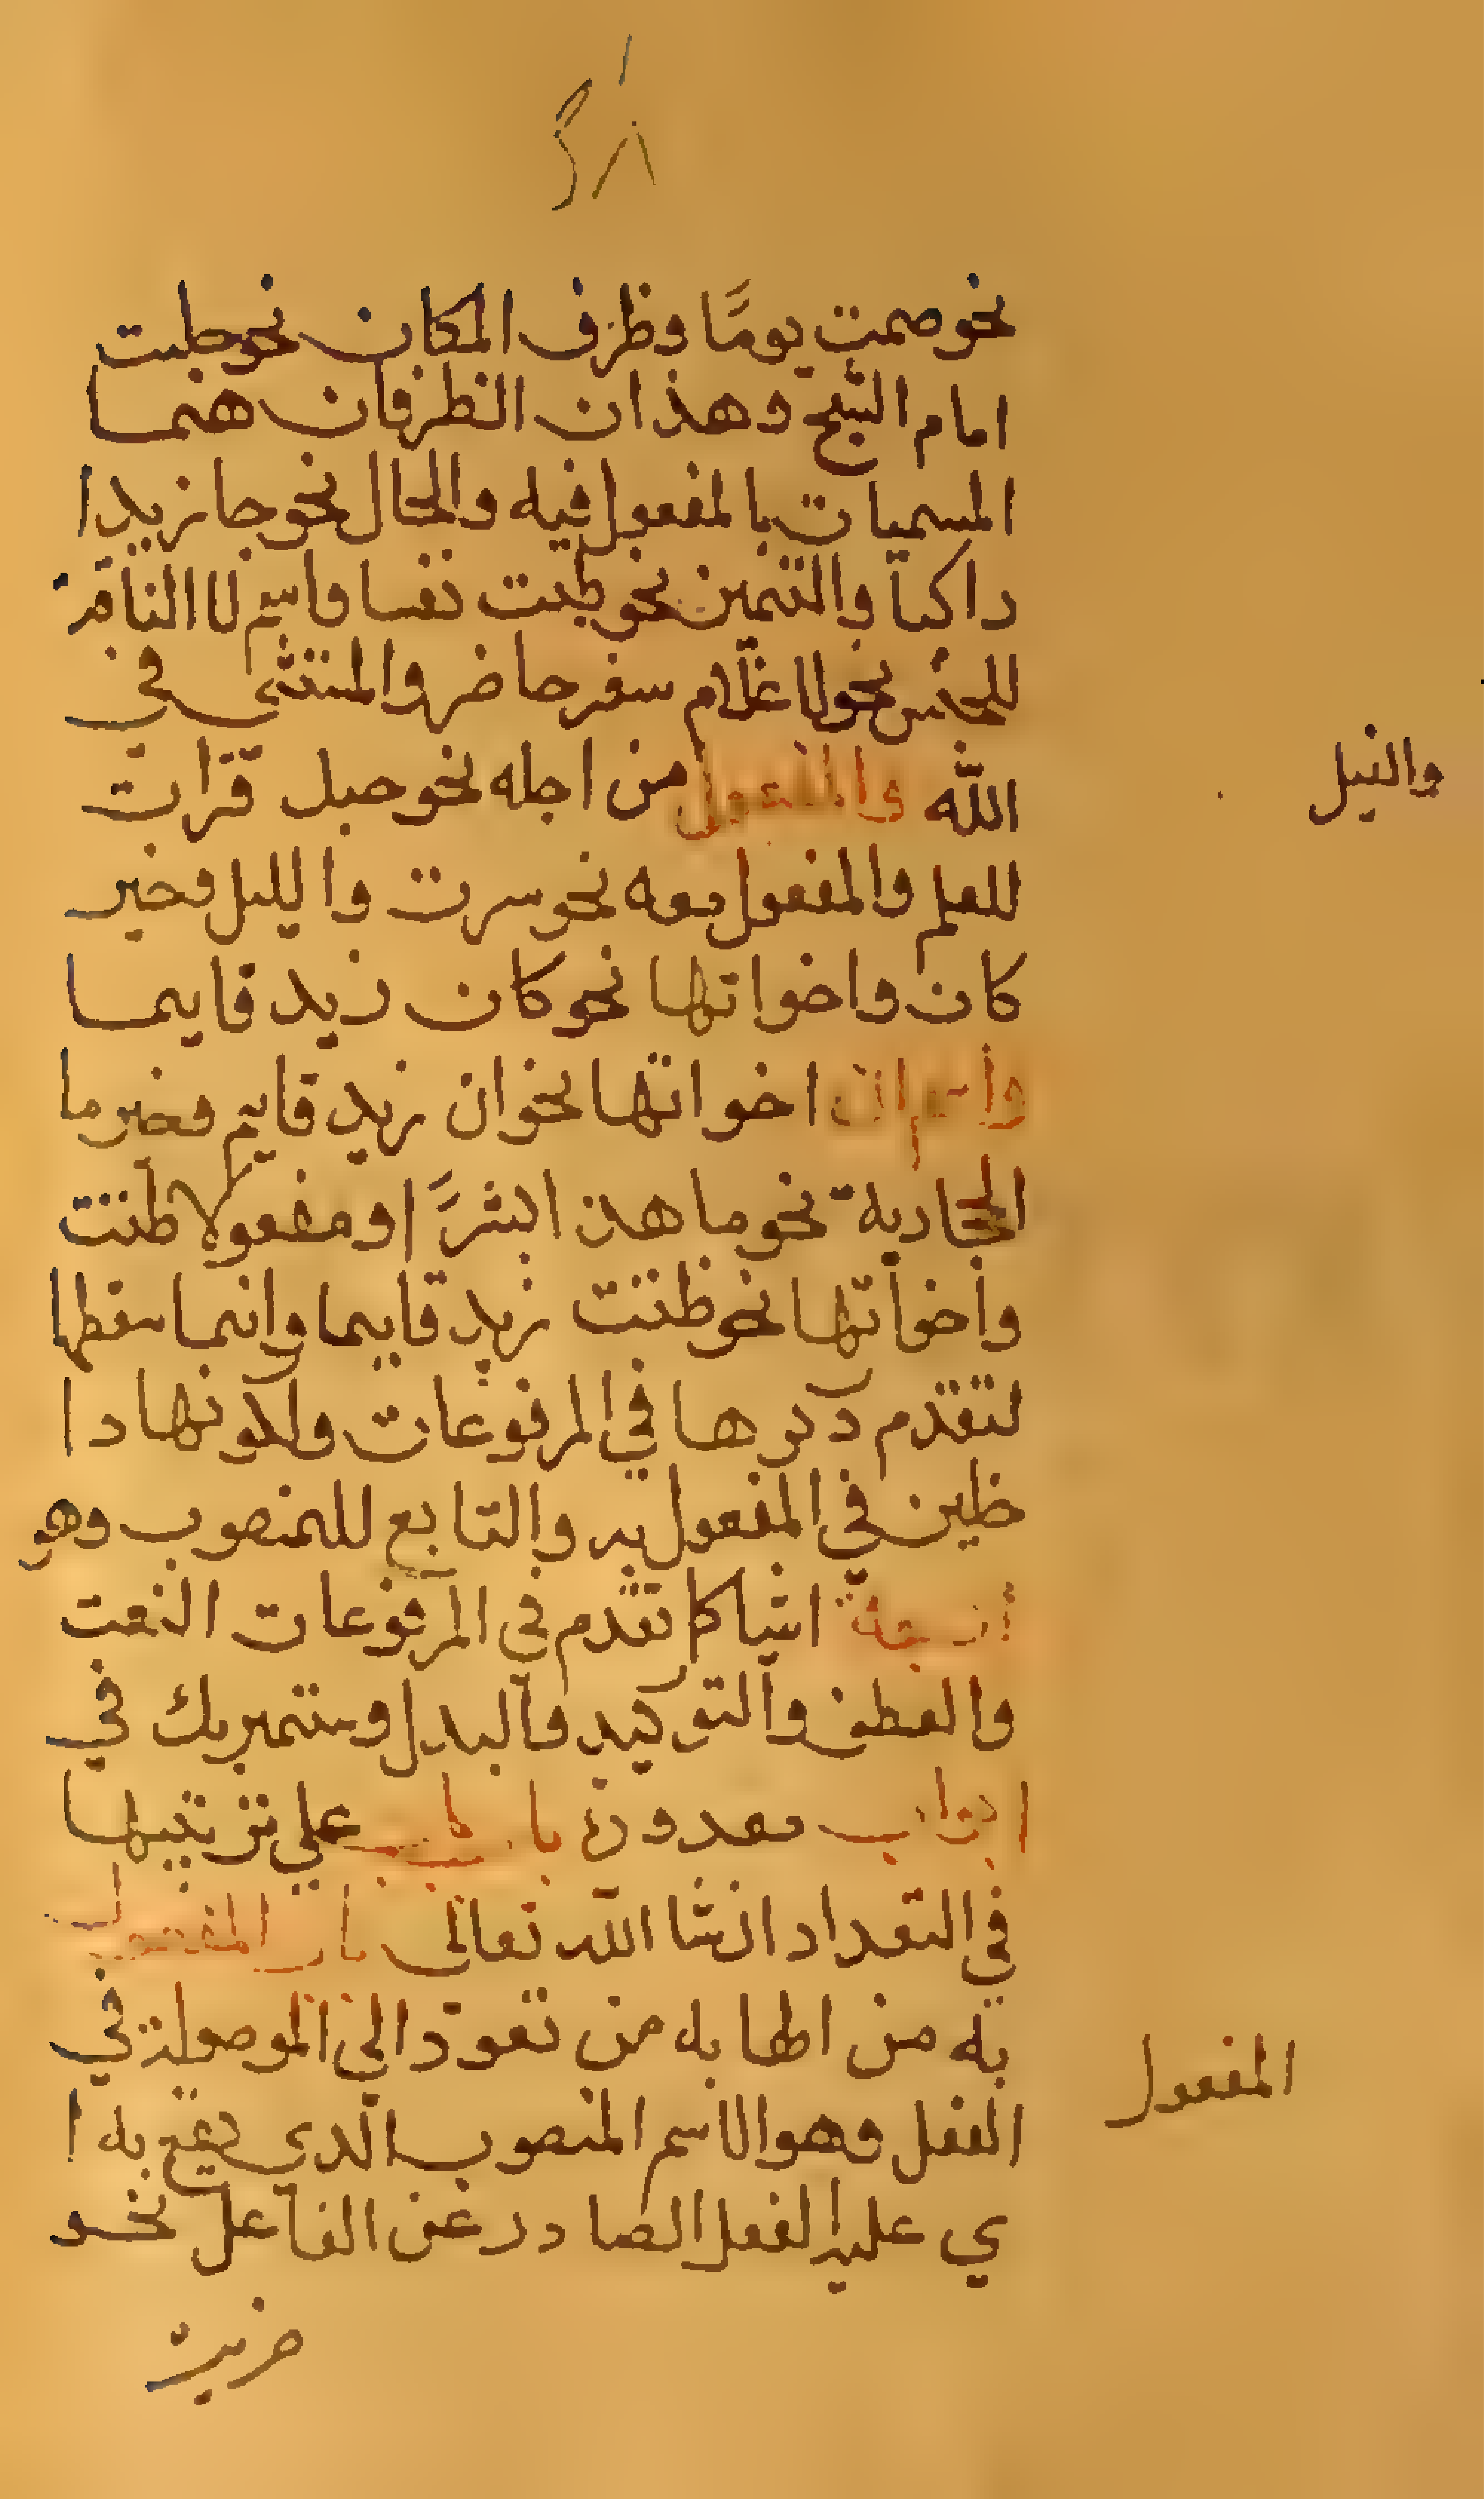 نحو صمت يومًا وظرف المكان نحو جلست
امام الشيخ وهذان الظرفان هما
المسميات بالمفعول فيه والحال نحو جا زيد ا
راكبا والتميز نحو طبت نفسا واسم لا النافية
للجنس نحو لا غلام سفر حاضر والمستثنى في
الله والمفعول من اجله نحو حبل قرات
للعلم والمفعول معه نحو سرت والليل وخبر
كان واخواتها نحو كان زيد قايما
واسم ان اخواتها نحو ان زيد قايم وخبر ما
الحجازية نحو ما هذا بشرًا ومفعولا ظننت
واخواتها نحو ظننت زيد قايما وانما سقطها
لتقدم ذكرها في المرفوعات ولكونها دا
خلين في المفعول به والتابع للمنصوب وهو
أربعة اشيا كما تقدم في المرفوعات النعت
والعطف والتوكيد والبدل وستمر بك في
ابواب معدودة على ترتيبها
في التعداد انشا الله تعالى باب المفعول
به من اطها به من تعود الى الموصولة في
الفعل وهو الاسم المنصوب الذي يقع به ا
ي عليه الفعل الصادر عن الفاعل نحو
ضربت
والنيل
المفعول